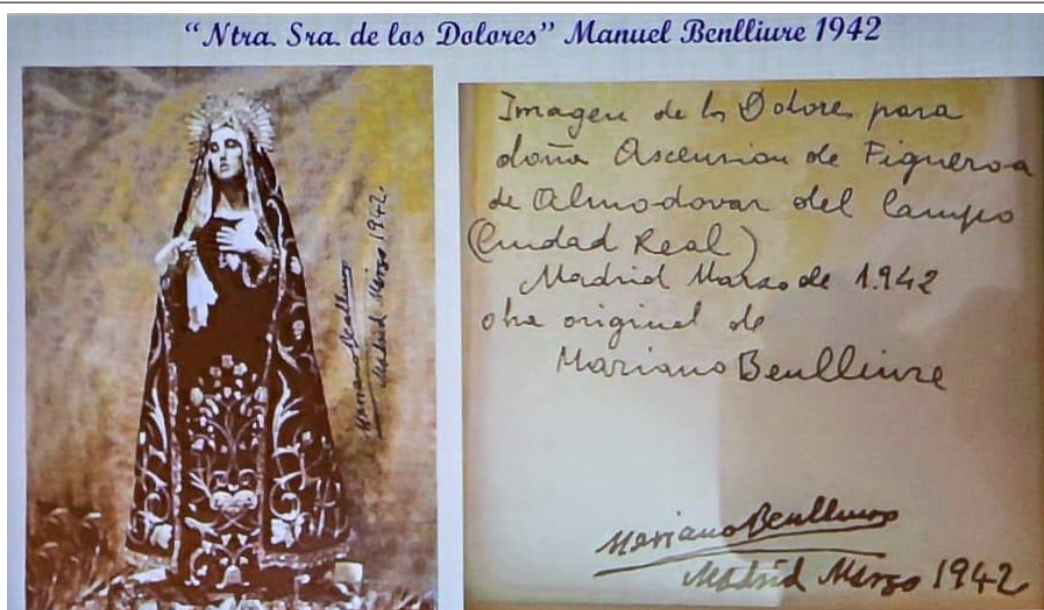 “Ntra. Sra. de los Dolores” Manuel Benlliure 1942
Mariano Benlliure
Madrid Marzo 1942.
Imagen de los Dolores para
doña Ascension de Figueroa
de Almodovar del Campo
(Ciudad Real)
Madrid Marzo de 1.942
obra original de
Mariano Benlliure
Mariano Benlliure
Madrid Marzo 1942